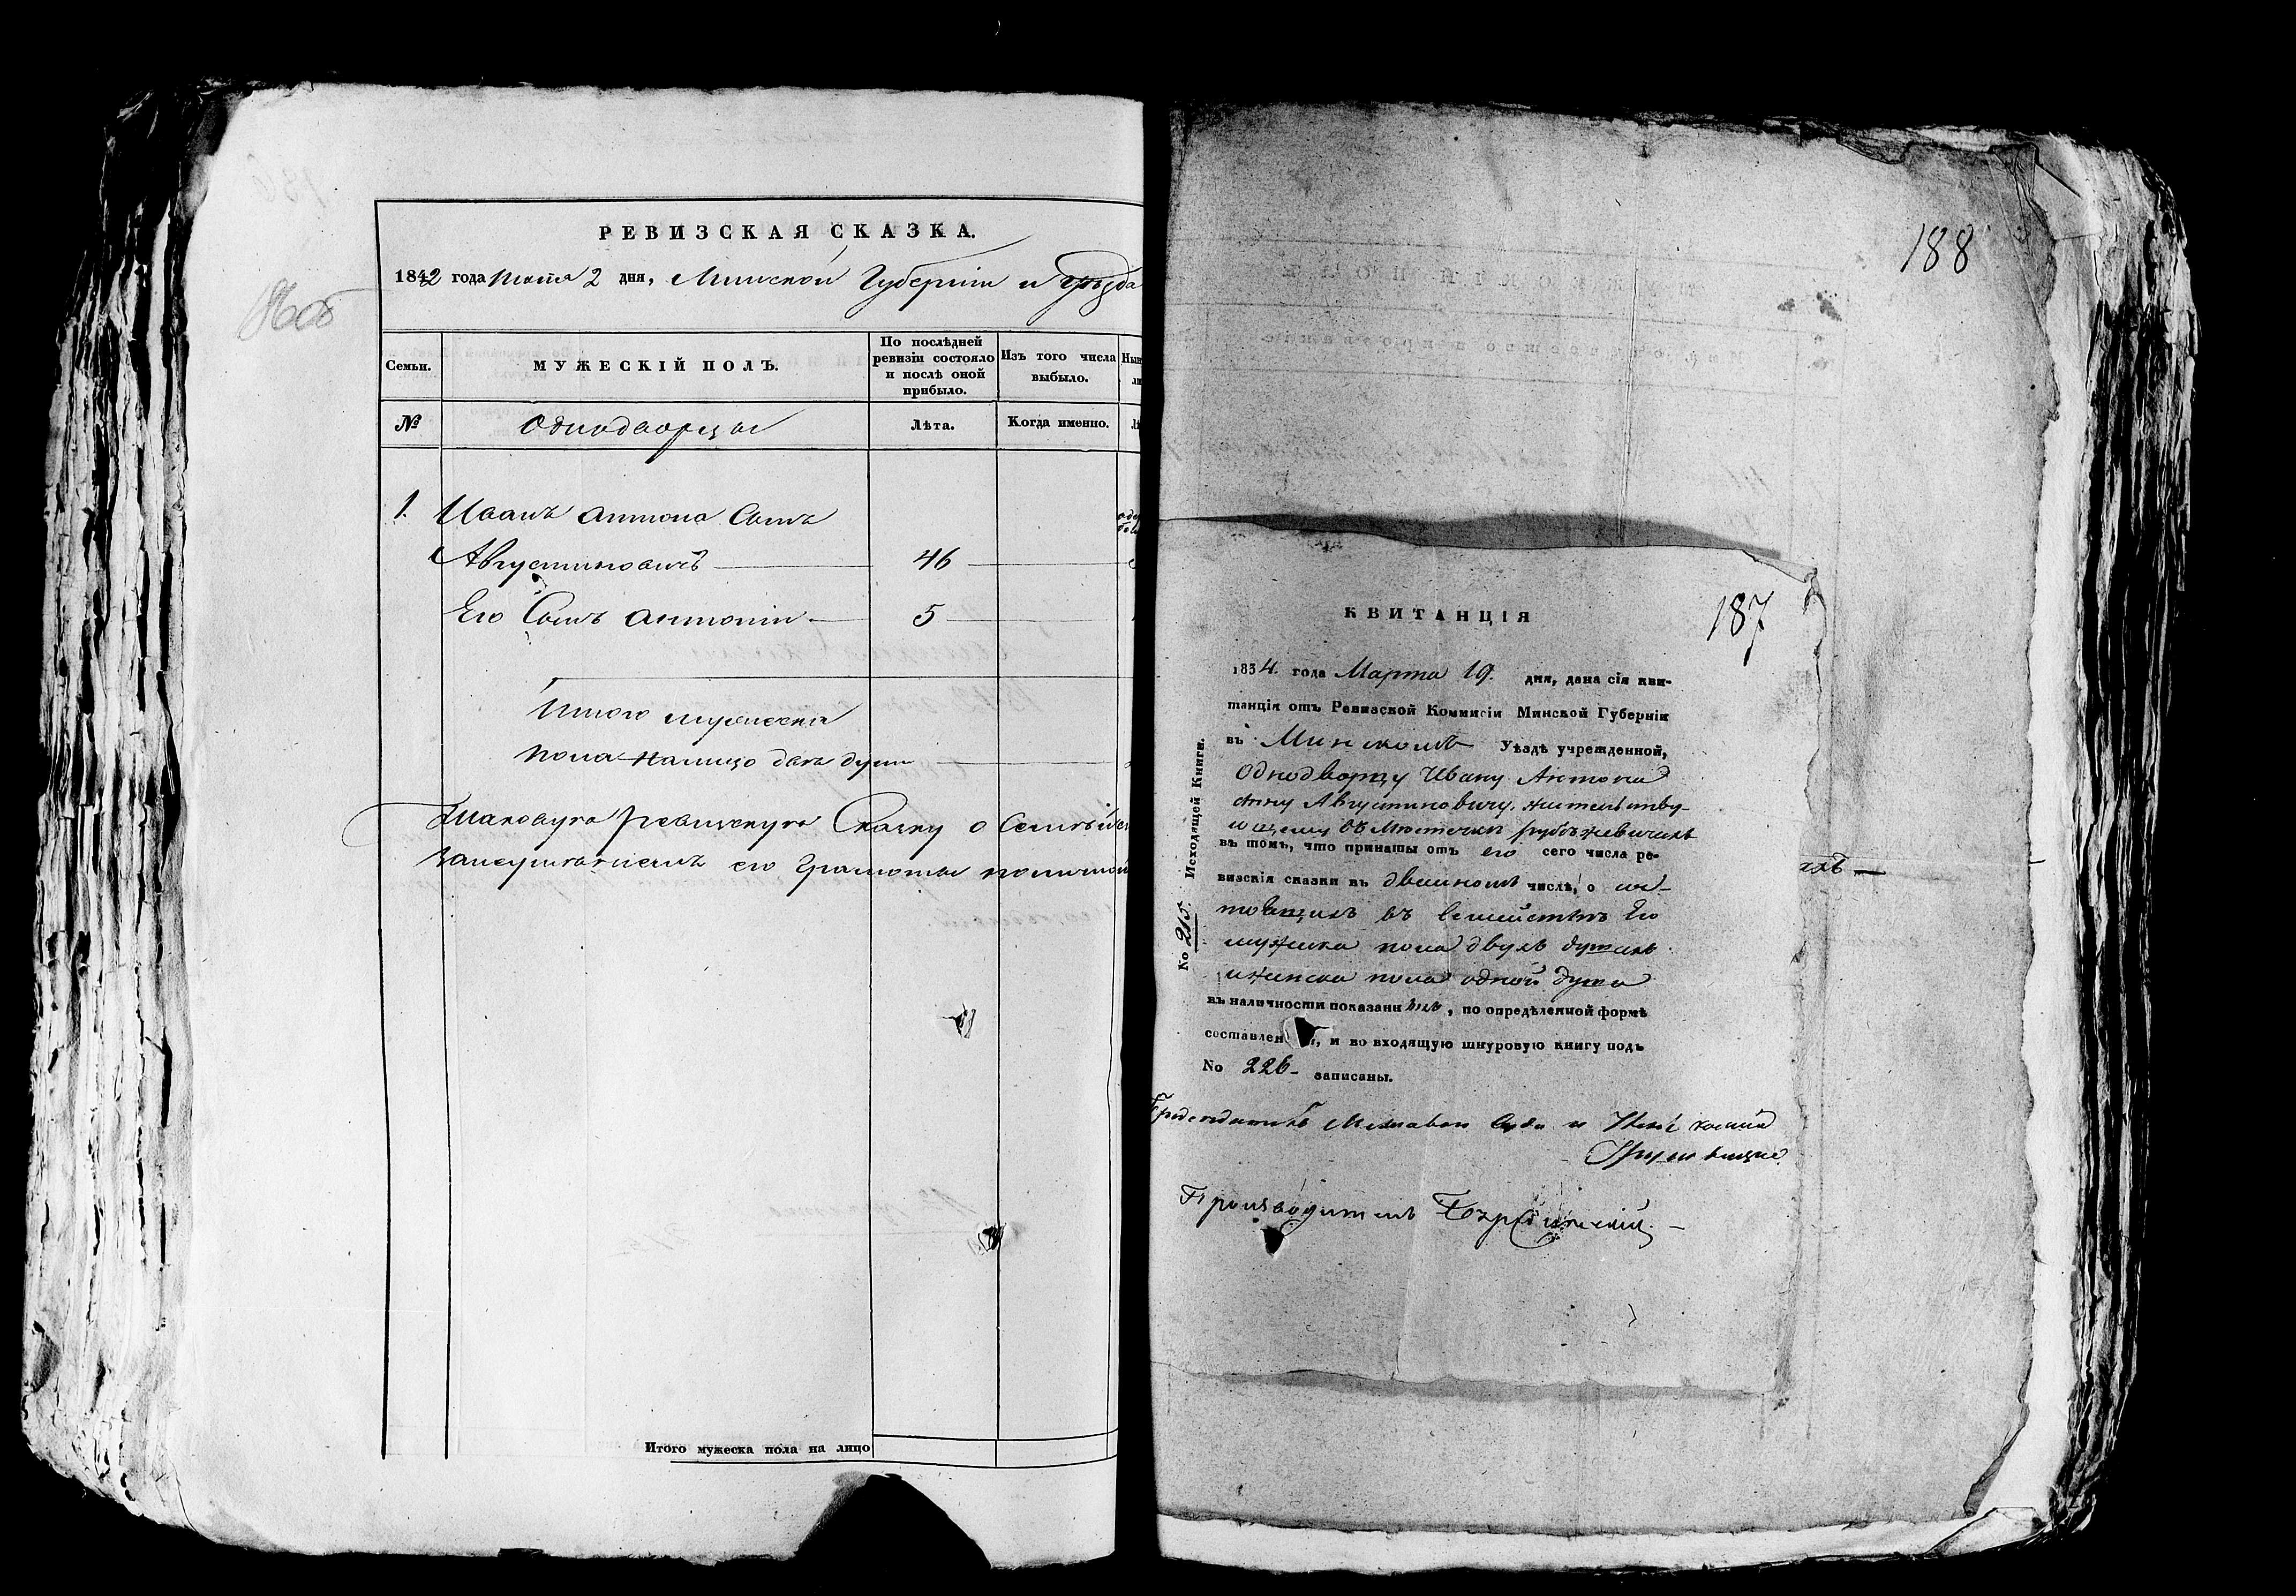 РЕВИЗСКАЯ СКАЗКА.
1842 года Июня 2 дня, Минской Губернии и Уезда
186об
Семьи.
МУЖЕСКІЙ ПОЛЪ.
По послѣдней ревизіи состояло и послѣ оной прибыло.
Изъ того числа выбыло.
№
Однодворцы
Лѣта.
Когда именно.
1. Иванъ Антона Сынъ
Августиновичъ 46
Его Сынъ Антоній 5
Итого мужеска
пола налицо двѣ души
Таковую ревизскую Сказку о Семействѣ
его грамоты
Итого мужеска пола на лицо
188
187
КВИТАНЦІЯ
1834. года Марта 19. дня, дана сія кви-
танція отъ Ревизской Коммисіи Минской Губерніи
въ Минскомъ Уѣздѣ учрежденной,
Однодворцу Ивану Антона
сыну Августиновичу, жительству-
ющему въ Местечкѣ Рубѣжевичахъ
въ томъ, что приняты отъ его сего числа ре-
визскія сказки въ двойномъ числѣ, о со-
стоящихъ въ Семействѣ Его
мужеска пола двухъ душахъ
и женска пола одной душа
въ наличности показанныхъ, по опредѣленной формѣ
составлен, и во входящую шнуровую книгу подъ
No 226 записаны.
No 215. Исходящей Книги.
Предсѣдатель
Производитель